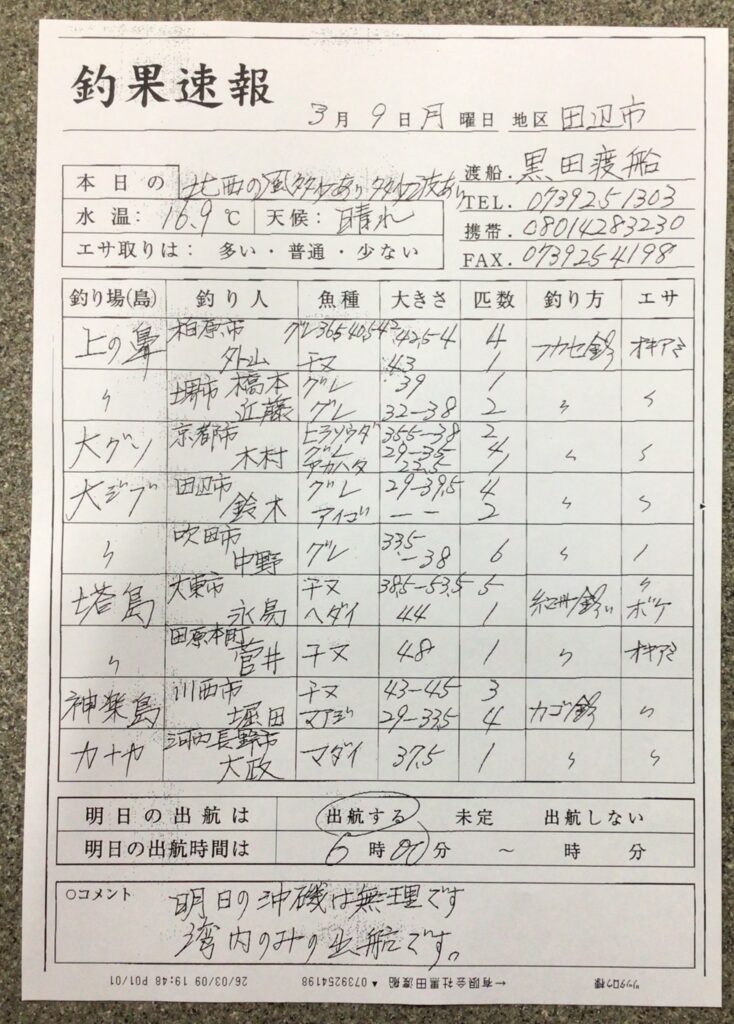 釣果速報
3月9日月曜日 地区 田辺市
渡船. 黒田渡船
本日の 北西の風多少あり 多少波あり
TEL. 0739251303
水温: 16.9℃ 天候: 晴れ
携帯. 08014283230
エサ取りは: 多い・普通・少ない
FAX. 0739254198
釣り場(島) 釣り人 魚種 大きさ 匹数 釣り方 エサ
上の鼻 柏原市 グレ 36.5 40.5 42. 42.5-4 4 フカセ釣 オキアミ
外山 チヌ 43 1
〃 堺市 橋本 グレ 39 1 〃 〃
近藤 グレ 32-38 2
大グソ 京都市 ヒラソウダ 35.5-38 2 〃 〃
木村 グレ 29-35 4
アカハタ 22.5 1
大ジブ 田辺市 グレ 29-39.5 4 〃 〃
鈴木 アイゴ ーー 2
〃 吹田市 中野 グレ 33.5-38 6 〃 〃
塔島 大東市 チヌ 38.5-53.5 5 〃
永易 ヘダイ 44 1 ボケ
〃 田原本町 菅井 チヌ 48 1 〃 オキアミ
神楽島 川西市 チヌ 43-45 3 カゴ釣 〃
堀田 マアジ 29-33.5 4
カナヤ 河内長野市 大政 マダイ 37.5 1 〃 〃
明日の出航は 出航する 未定 出航しない
明日の出航時間は 6時00分 ～ 時 分
○コメント 明日の沖磯は無理です
湾内のみの出航です。
26/03/09 19:48 P01/01 0739254198 ▲ ←有限会社黒田渡船 ツリタロウ様